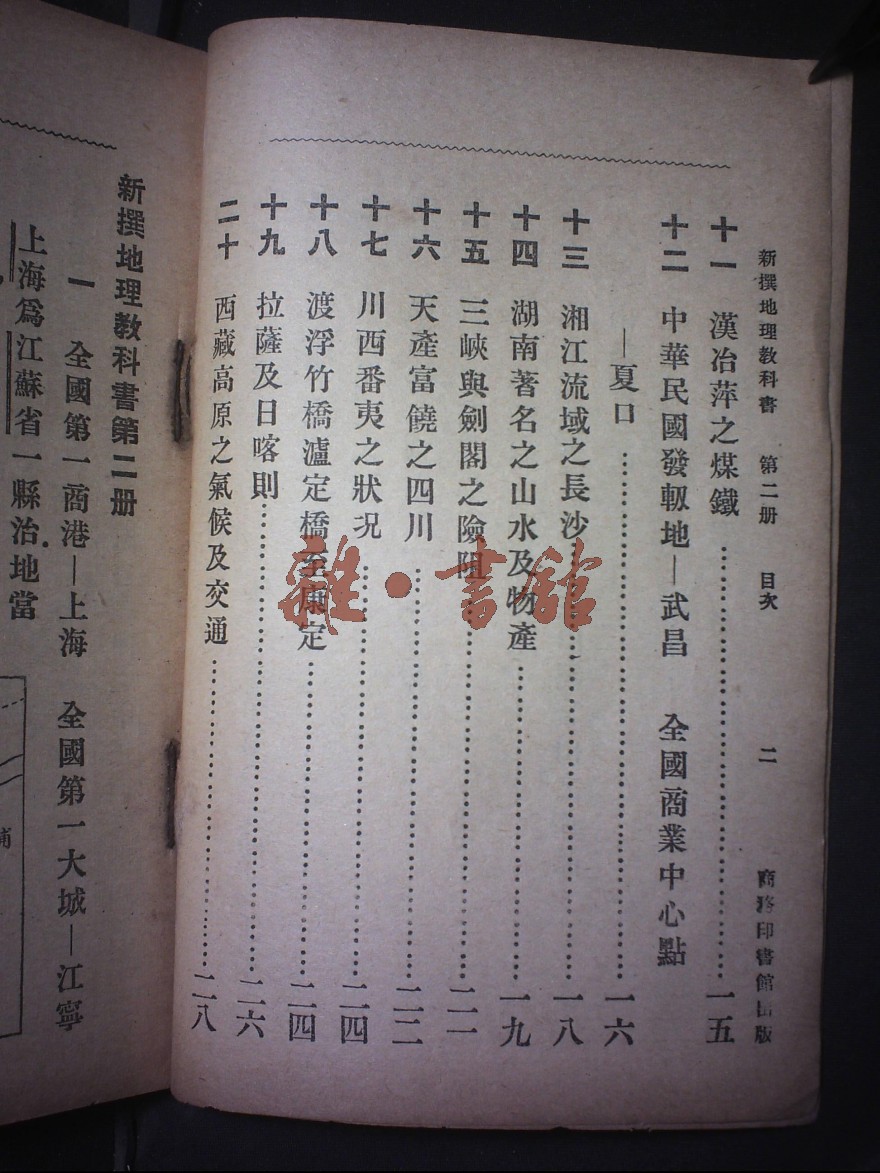 新撰地理教科書 第二册 目次 二 商務印書館出版
十一 漢冶萍之煤鐵……一五
十二 中華民國發軔地—武昌 全國商業中心點
—夏口……一六
十三 湘江流域之長沙……一八
十四 湖南著名之山水及物產……一九
十五 三峽與劍閣之險阻……二一
十六 天產富饒之四川……二三
十七 川西番夷之狀況……二四
十八 渡浮竹橋瀘定橋至康定……二四
十九 拉薩及日喀則……二六
二十 西藏高原之氣候及交通……二八
新撰地理教科書第二册
一 全國第一商港—上海 全國第一大城—江寧
上海爲江蘇省一縣治地當
雜·書館